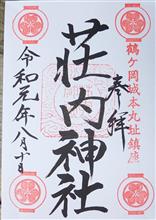 鶴ヶ岡城本丸址鎮座
奉拝
荘内神社
令和元年八月十日